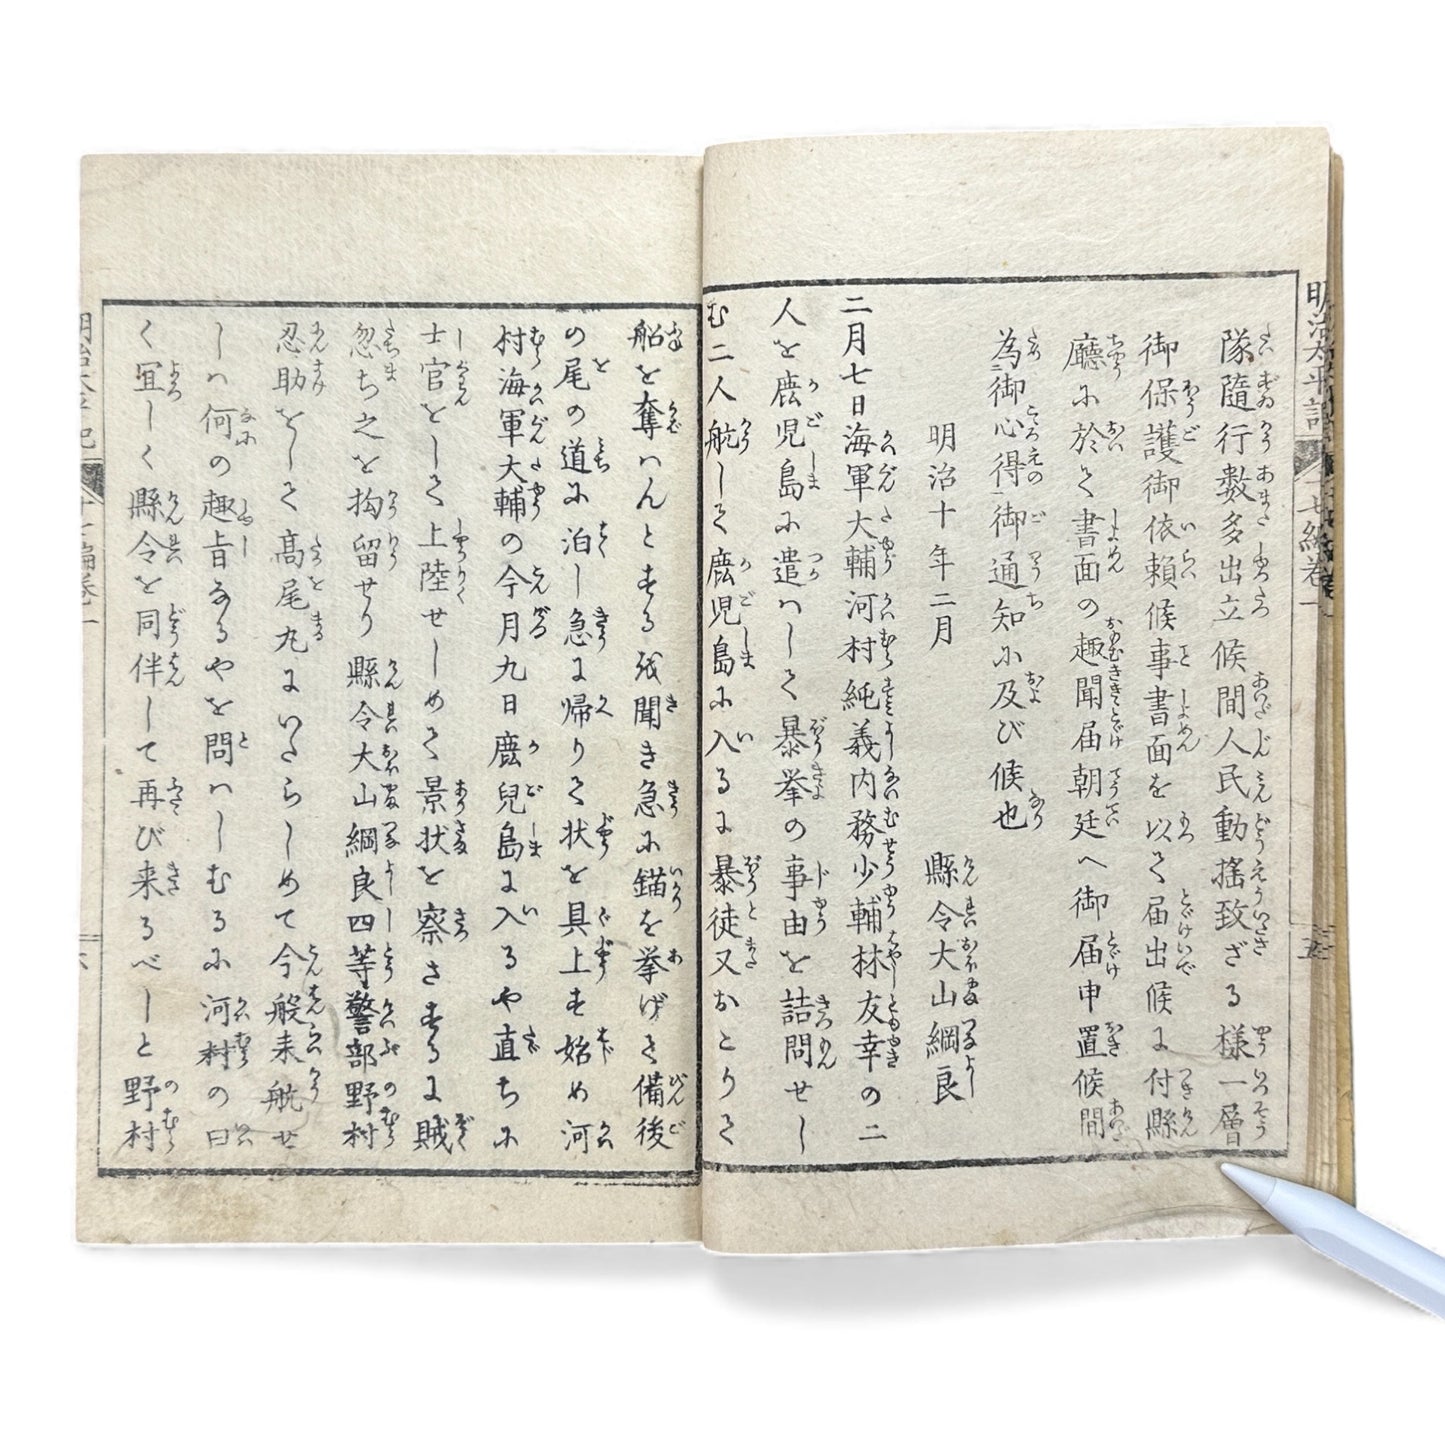 明治太平記 十七編巻一 五
隊隨行数多出立候間人民動揺致ざる様一層
御保護御依頼候事書面を以て届出候に付縣
廳に於て書面の趣聞届朝廷へ御届申置候間
為御心得御通知に及び候也
明治十年二月 縣令大山綱良
二月七日海軍大輔河村純義内務少輔林友幸の二
人を鹿児島に遣ハして暴挙の事由を詰問せし
む二人航して鹿児島に入るに暴徒又おとりて
船を奪ハんとする越聞き急に錨を挙げて備後
の尾の道に泊し急に帰りて状を具上す始め河
村海軍大輔の今月九日鹿兒島に入るや直ちに
士官をして上陸せしめて景状を察さするに賊
忽ち之を拘留せり縣令大山綱良四等警部野村
忍助をして高尾丸にいたらしめて今般来航せ
しハ何の趣旨なるやを問ハしむるに河村の曰
く宜しく縣令を同伴して再び来るべしと野村
明治太平記 十七編巻一 六